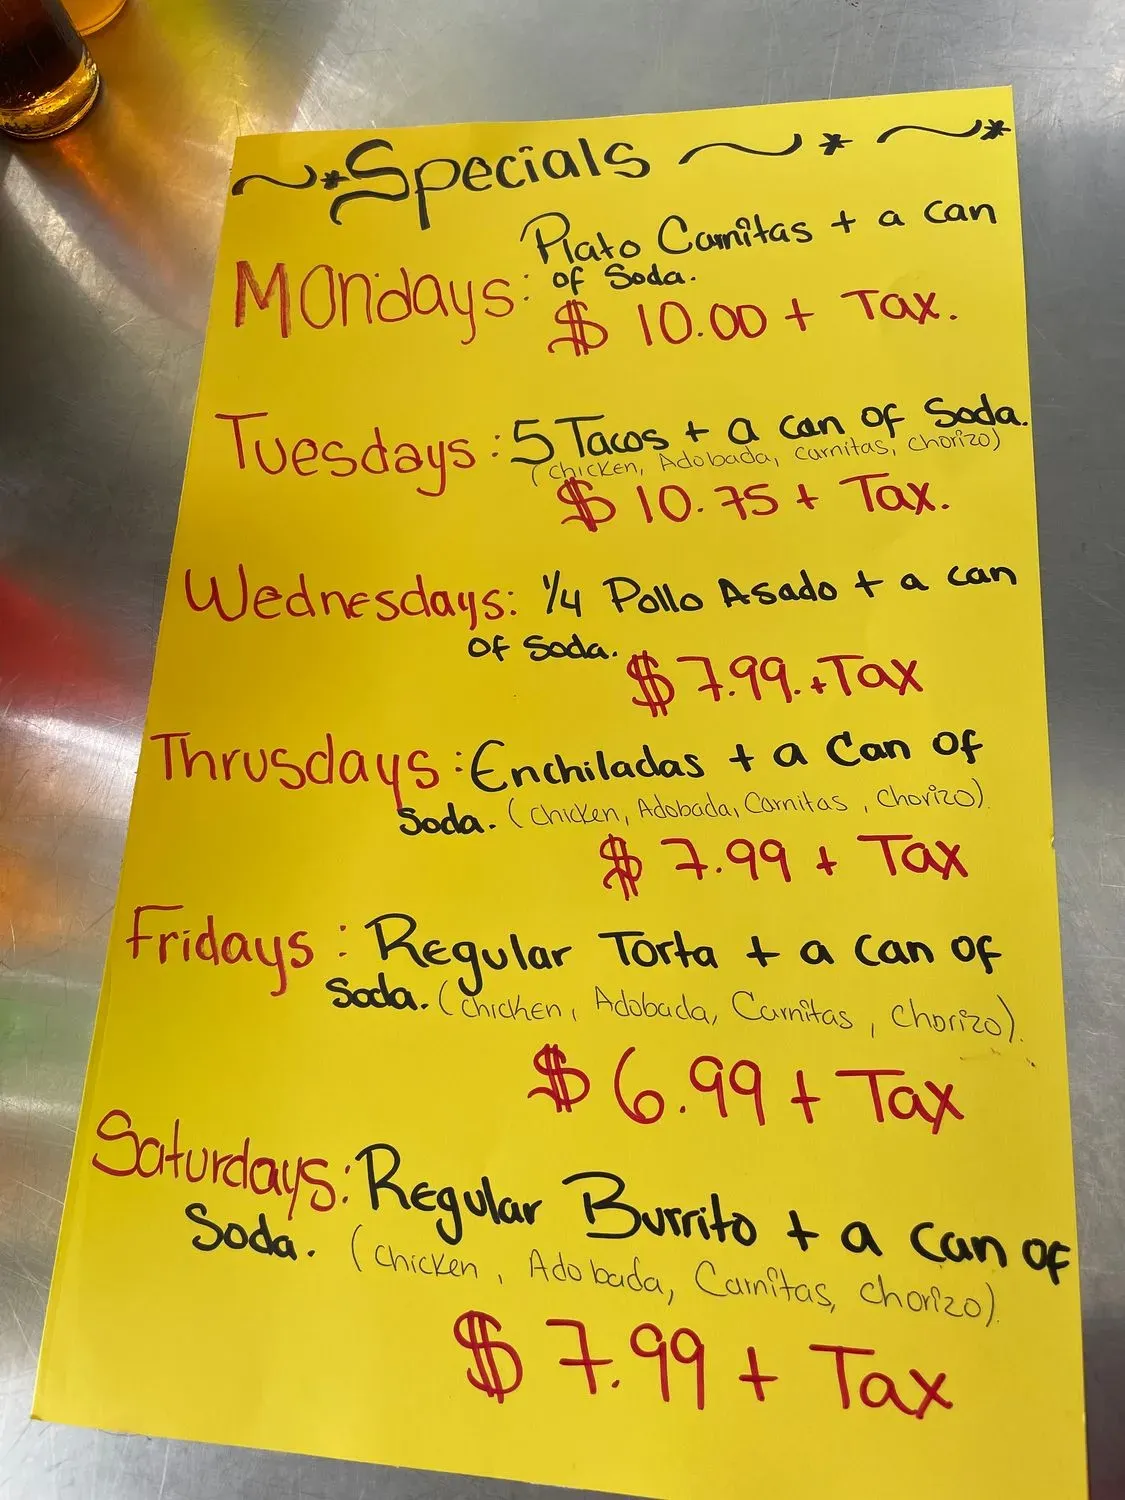 ~*Specials ~* ~*
Plato Carnitas + a can
Mondays: of Soda.
$ 10.00 + Tax.
Tuesdays: 5 Tacos + a can of Soda.
(chicken, Adobada, carnitas, chorizo)
$ 10.75 + Tax.
Wednesdays: 1/4 Pollo Asado + a can
of Soda.
$ 7.99.+Tax
Thrusdays: Enchiladas + a Can Of
Soda. (chicken, Adobada, Carnitas, chorizo).
$ 7.99 + Tax
Fridays: Regular Torta + a can of
Soda. (chicken, Adobada, Carnitas, chorizo).
$ 6.99 + Tax
Saturdays: Regular Burrito + a can of
Soda. (chicken, Adobada, Carnitas, chorizo).
$ 7.99 + Tax